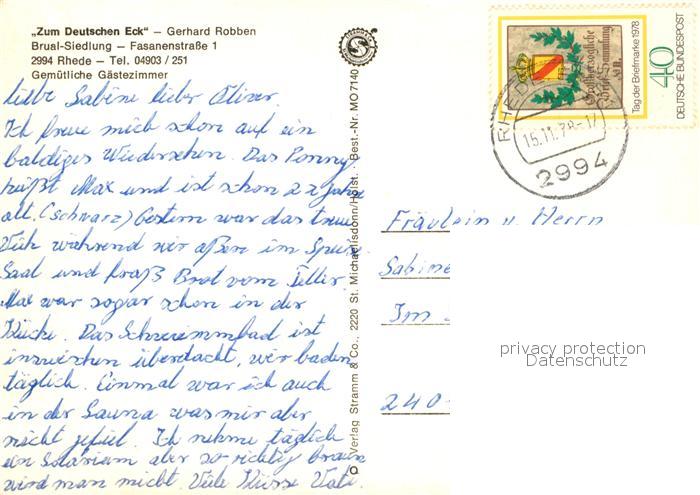 „Zum Deutschen Eck“ – Gerhard Robben
Brual-Siedlung – Fasanenstraße 1
2994 Rhede – Tel. 04903 / 251
Gemütliche Gästezimmer
liebe Sabine lieber Oliver.
Ich freue mich schon auf ein
baldiges Wiedersehen. Das Ponny
heißt Max und ist schon 22 Jahre
alt. (schwarz) Gestern war das treue
Vieh während wir aßen im Speise
Saal und fraß Brot vom Teller.
Max war sogar schon in der
Küche. Das Schwimmbad ist
inzwischen überdacht, wir baden
täglich. Einmal war ich auch
in der Sauna was mir aber
nicht gefiel. Ich nehme täglich
ein Solarium aber so richtig braun
wird man nicht. Viele Küsse Vati.
© Verlag Stramm & Co., 2220 St. Michaelisdonn/Holst. Best.-Nr. MO7140
Großherzogliche
Brief-Sammlung
Tag der Briefmarke 1978
40
DEUTSCHE BUNDESPOST
RHEDE
15.11.78-17
2994
Fräulein u. Herrn
Sabine
Im
240
privacy protection
Datenschutz